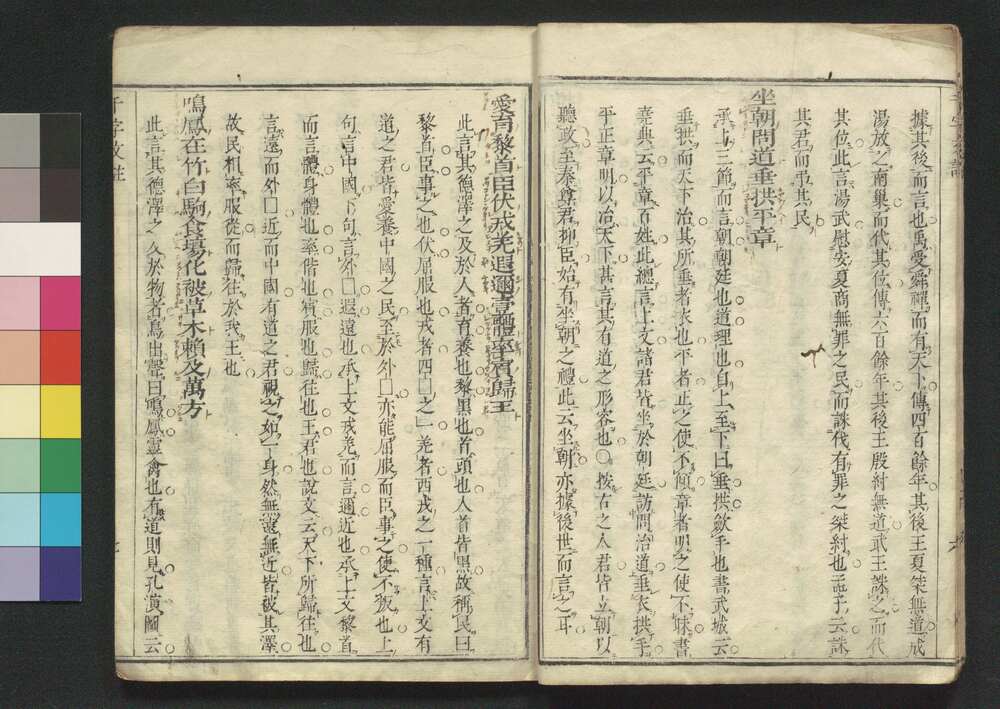 據其後而言也禹愛舜禪而有天下傳四百餘年其後王夏桀無道成
湯放之南巢而代其位傳六百餘年其後王殷紂無道武王誅之而代
其位此言湯武慰安夏商無罪之民而誅伐有罪之桀紂也孟子云誅
其君而弔其民
坐朝問道垂拱平章
承上三節而言朝朝廷也道理也自上至下曰垂拱斂手也書武城云
垂拱而天下治其所垂者衣也平者正之使不傾章者明之使不昧書
堯典云平章百姓此總言上文諸君皆坐於朝廷訪問治道垂衣拱手
平正章明以治天下甚言其有道之形容也○按古之人君皆立朝以
聽政至秦尊君抑臣始有坐朝之禮此云坐朝亦據後世而言之耳
愛育黎首臣伏戎羌遐邇壹體率賓歸王
此言其德澤之及於人者育養也黎黑也首頭也人首皆黑故稱民曰
黎首臣事之也伏屈服也戎者四□之一羌者西戎之一種言上文有
道之君皆愛養中國之民至於外□亦能屈服而臣事之使不叛也上
句言中國下句言外□遐遠也承上文戎羌而言邇近也承上文黎首
而言體身體也率偕也賓服也歸往也王君也說文云天下所歸往也
言遠而外□近而中國有道之君視之如一身然無遠無近皆被其澤
故民相率服從而歸往於我王也
鳴鳳在竹白駒食場化被草木賴及萬方
此言其德澤之久於物者鳥出聲曰鳴鳳靈禽也有道則見孔演圖云